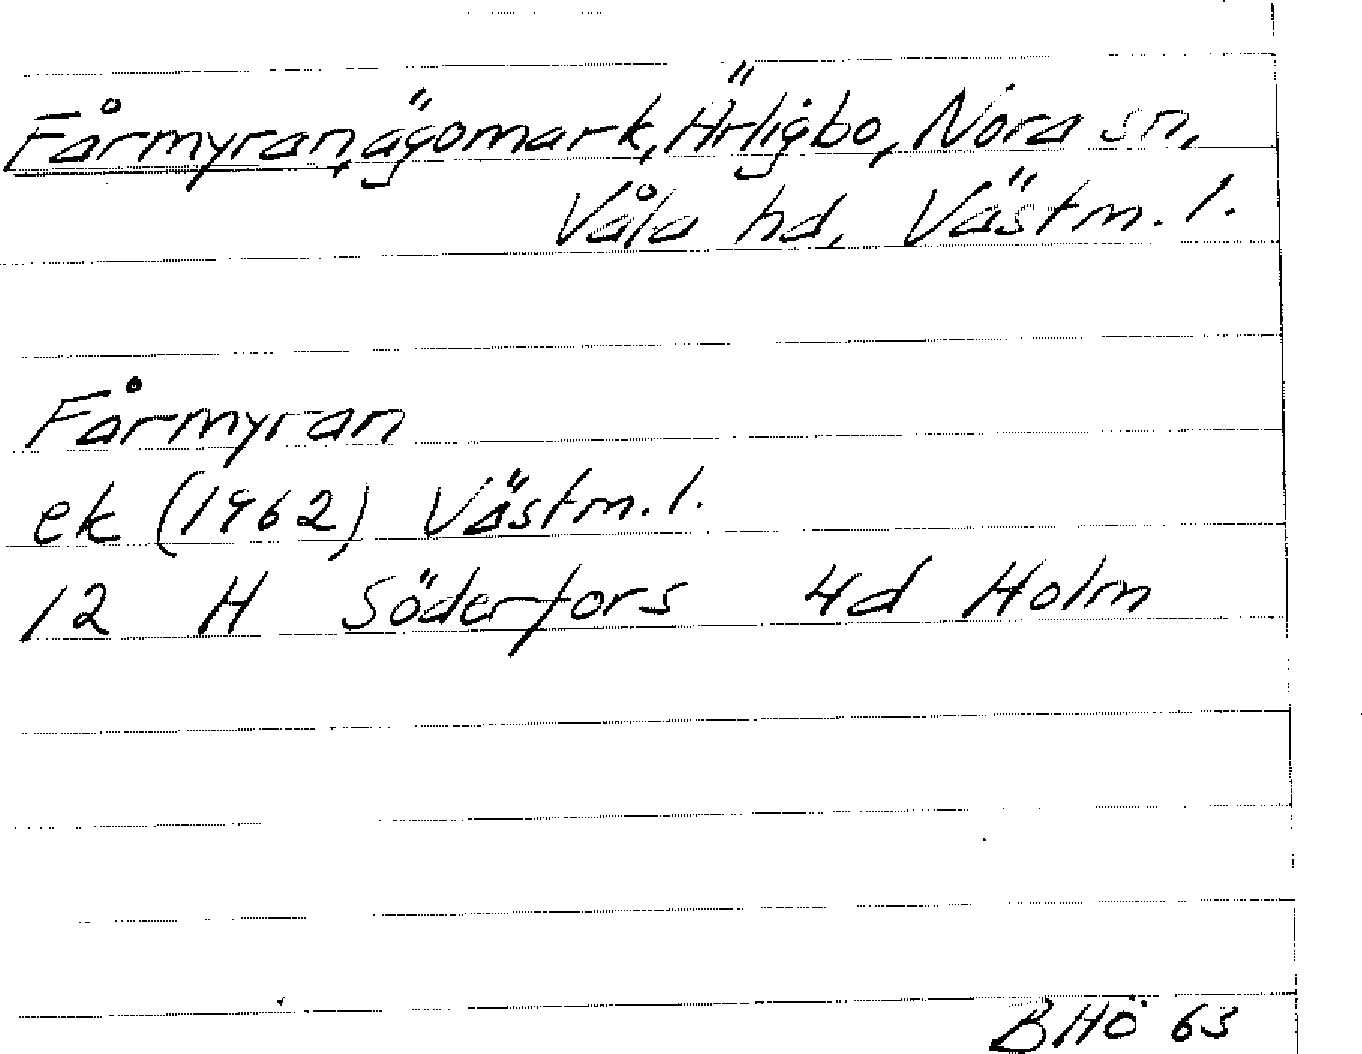 Fårmyran, ägomark, Ärligbo, Nora sn,
Våla hd, Västm. l.
Fårmyran
ek (1962) Västm. l.
12 H Söderfors 4d Holm
BHÖ 63